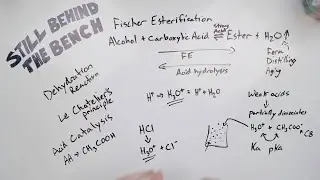 STILL BEHIND
THE BENCH
Fischer Esterification
Alcohol + Carboxylic Acid ⇌ Ester + H₂O ↑
strong
Acid
FE
Acid hydrolysis
Ferm
Distilling
Aging
Dehydration
Reaction
Le Chatelier's
principle
Acid Catalysis
H⁺ → H₃O⁺ = H⁺ + H₂O
HCl
H₃O⁺ + Cl⁻
Weak acids
partially dissociates
H₃O⁺ + CH₃COO⁻
CB
Ka pKa